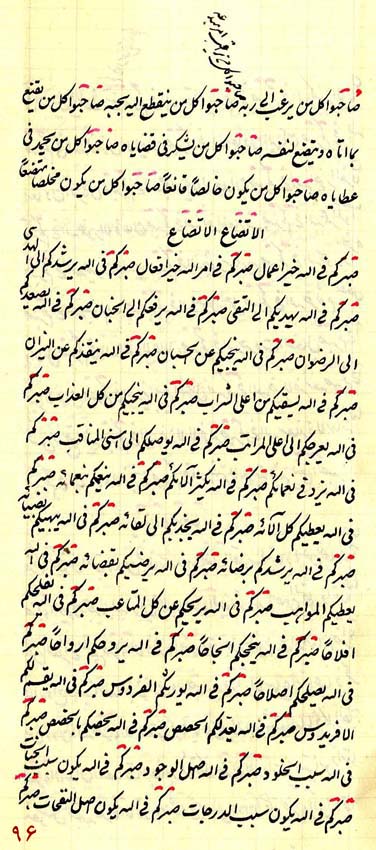 صاحبوا كل من يرغب الى ربه صاحبوا كل من ينقطع اليه بحبه صاحبوا كل من يقنع
بما اتاه ويتضع لنفسه صاحبوا كل من يشكر في قضاياه صاحبوا كل من يحمد في
عطاياه صاحبوا كل من يكون خالصاً قانعاً صاحبوا كل من يكون مخلصاً متضعاً
الاتضاع الاتضاع
صبركم في الله خير اعمال صبركم في امر الله خير افعال صبركم في الله يرشدكم الى الهدى
صبركم في الله يهديكم الى التقى صبركم في الله يرفعكم الى الجنان صبركم في الله يصعدكم
الى الرضوان صبركم في الله ينجيكم عن الحسبان صبركم في الله ينقذكم عن النيران
صبركم في الله يسقيكم من اعلى الشراب صبركم في الله ينجيكم من كل العذاب صبركم
في الله يعرجكم الى اعلى المراتب صبركم في الله يوصلكم الى سنى المناقب صبركم
في الله يزد في نعمائكم صبركم في الله يكثر آلائكم صبركم في الله ينعمكم نعمائه صبركم
في الله يعطيكم كل آلائه صبركم في الله يجذبكم الى لقائه صبركم في الله يهبيكم نصيبائه
صبركم في الله يرشدكم برضائه صبركم في الله يرضيكم بقضائه صبركم في الله
يعطيكم المواهيب صبركم في الله يريحكم عن كل المتاعب صبركم في الله يفلحكم
افلاحاً صبركم في الله ينجحكم انجاحاً صبركم في الله يروحكم ارواحاً صبركم
في الله يصلحكم اصلاحاً صبركم في الله يورثكم الفردوس صبركم في الله يقسم لكم
الافريدوس صبركم في الله يعدّ لكم الحصص صبركم في الله يخصكم بالخصص صبركم
في الله سبب الخلود صبركم في الله اصل الوجود صبركم في الله يكون سبب الجنات
صبركم في الله يكون سبب الدرجات صبركم في الله يكون اصل النفحات صبركم
٩۶